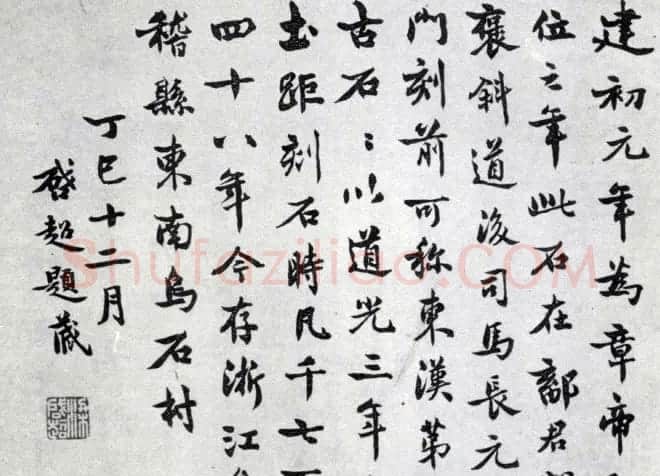 建初元年為章帝
位之年此石在鄐君
褒斜道後司馬長元
門刻前可称東漢第
古石〻以道光三年
出距刻石時凡千七百
四十八年今存浙江會
稽縣東南烏石村
丁巳十二月
啓超題藏
Shufaziliao.COM